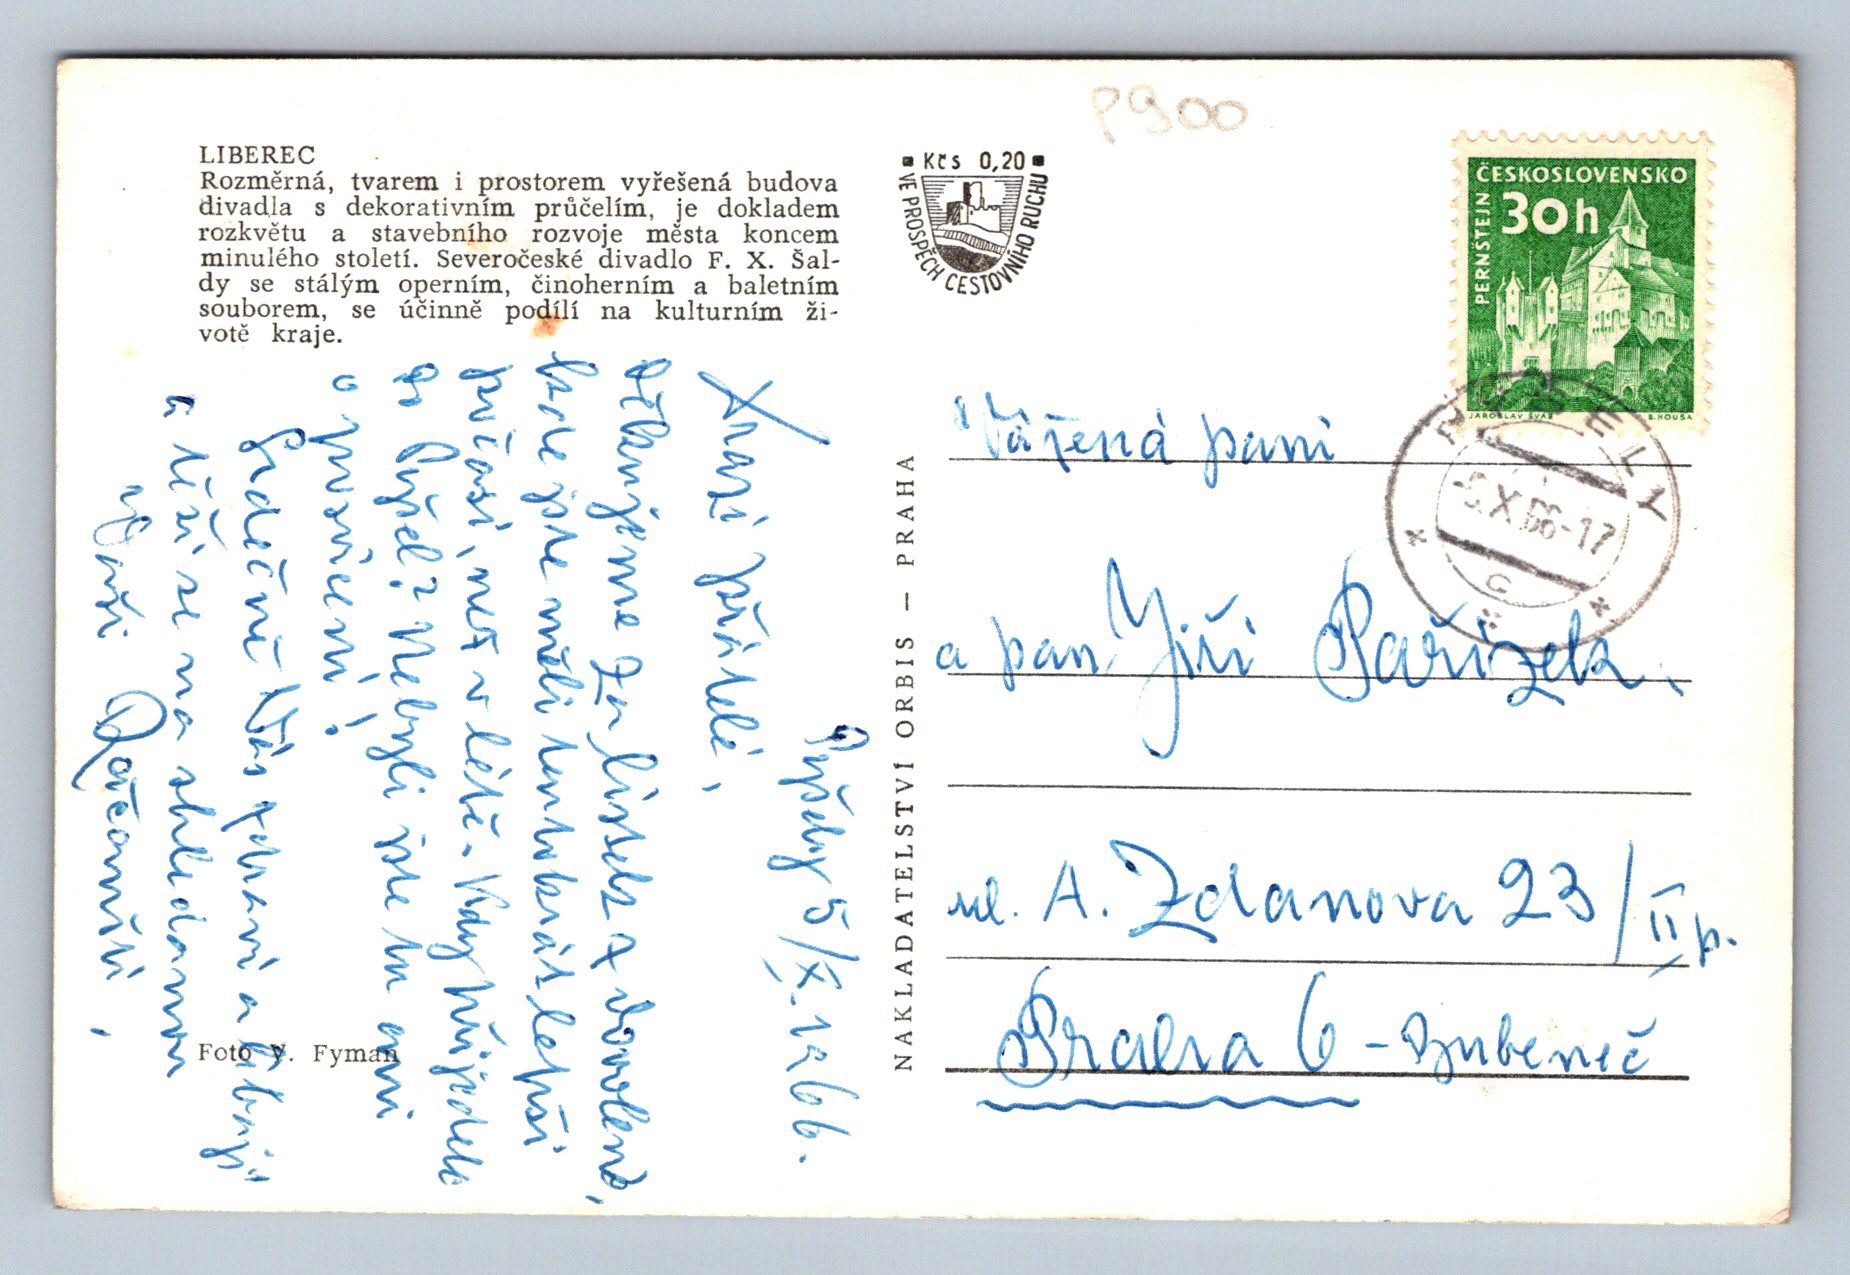 P900
LIBEREC
Rozměrná, tvarem i prostorem vyřešená budova
divadla s dekorativním průčelím, je dokladem
rozkvětu a stavebního rozvoje města koncem
minulého století. Severočeské divadlo F. X. Šal-
dy se stálým operním, činoherním a baletním
souborem, se účinně podílí na kulturním ži-
votě kraje.
Kčs 0,20
VE PROSPĚCH CESTOVNÍHO RUCHU
ČESKOSLOVENSKO
30h
PERNŠTEJN
JAROSLAV ŠVÁB
B. HOUSA
-5.X.66-17
c
Pyšely 5/X. 1966.
Drazí přátelé,
děkujeme za lístek z dovolené,
kde jste měli tentokrát lepší
počasí, než v létě. Kdy přijedete
do Pyšel? Nebyli jste tu ani
o posvícení!
Srdečně Vás zdraví a líbají
a těší se na shledanou
Vaši
Foto V. Fyman
NAKLADATELSTVÍ ORBIS — PRAHA
Vážená paní
a pan Jiří Pařízek,
ul. A. Zdanova 23/II p.
Praha 6 - Bubeneč